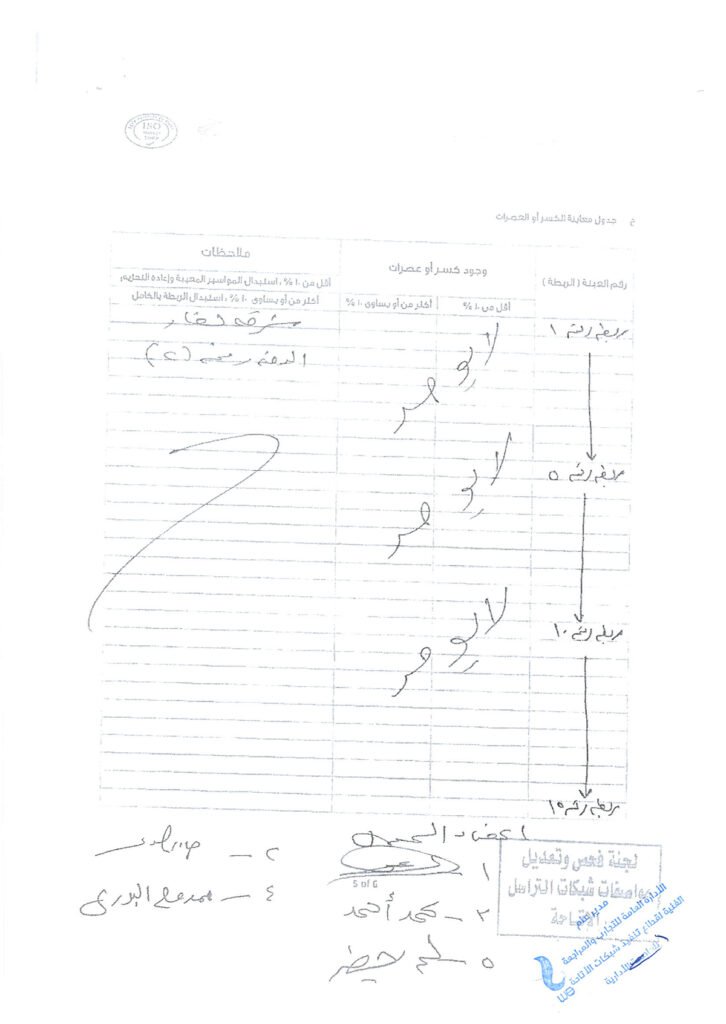 ISO
ج جدول معاينة الكسر أو العصرات
رقم العينة ( الربطة )
وجود كسر أو عصرات
ملاحظات
أقل من ١٠ %
أكثر من أو يساوى ١٠ %
أقل من ١٠ % ، استبدال المواسير المعيبة وإعادة التحزيم
أكثر من أو يساوى ١٠ % ، استبدال الربطة بالكامل
ربطة رقم ١
لا يوجد
الدفعة رقم (٢)
ربطة رقم ٥
لا يوجد
ربطة رقم ١٠
لا يوجد
ربطة رقم ١٥
أعضاء
١
٢ –
5 of 6
٣ – محمد أحمد
٤ – محمد
٥
لجنة فحص وتعديل
مواصفات شبكات التراسل
الإتاحة
الأدارة العامة للتجارب والمراجعة
الفنية لقطاع تنفيذ شبكات الأتاحة
مدير عام
WE